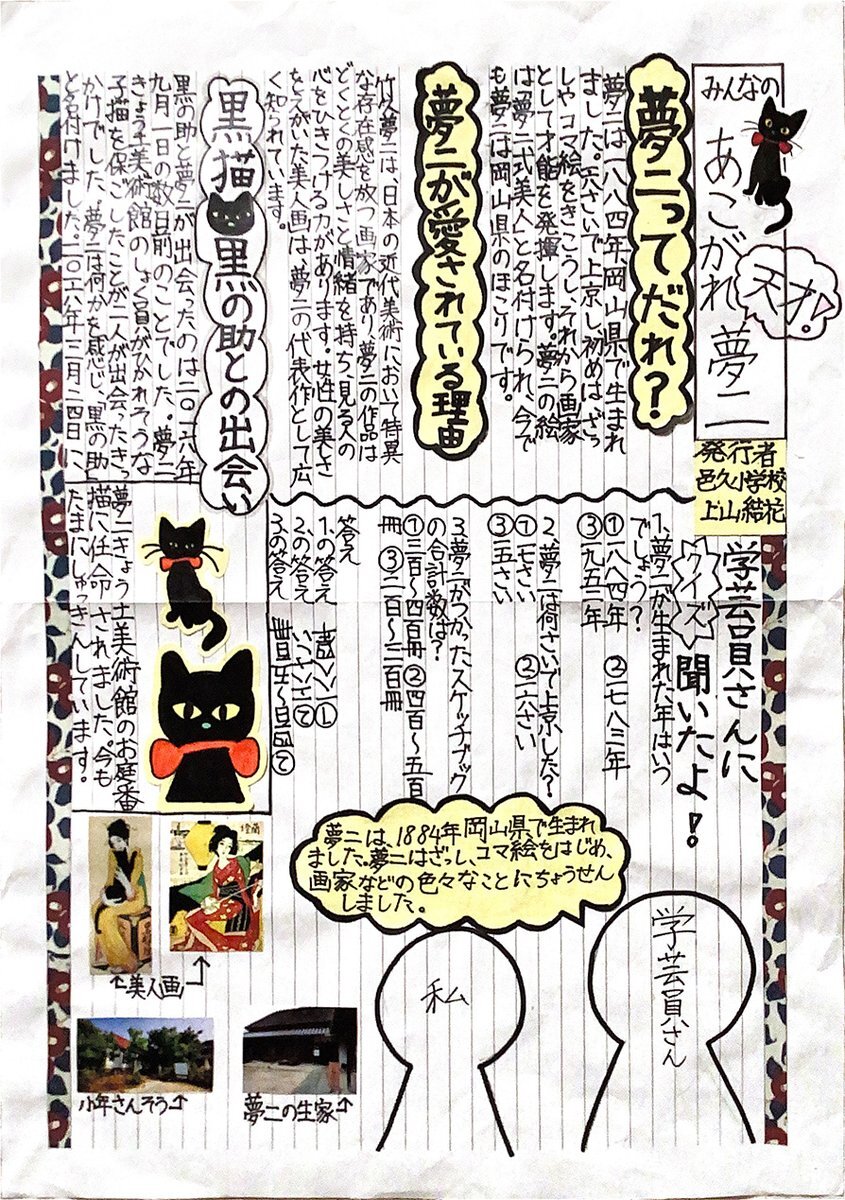 みんなの
あこがれ夢二
天才!
発行者
邑久小学校
上山結花
夢二ってだれ?
夢二は一八八四年、岡山県で生まれ
ました。六さいで上京し、初めはざっ
しやコマ絵をきこうし、それから画家
として才能を発揮します。夢二の絵
は「夢二式美人」と名付けられ、今で
も夢二は岡山県のほこりです。
夢二が愛されている理由
竹久夢二は、日本の近代美術において特異
な存在感を放つ画家であり、夢二の作品は
どくとくの美しさと情緒を持ち、見る人の
心をひきつける力があります。女性の美しさ
をえがいた美人画は、夢二の代表作として広
く知られています。
黒猫黒の助との出会い
黒の助と夢二が出会ったのは二〇一六年
九月一日の数日前のことでした。夢二
きょう土美術館のしょく員がひかれそうな
子猫を保ごしたことが二人が出会ったきっ
かけでした。夢二は何かを感じ、黒の助
と名付けました。二〇一六年三月二四日に、
夢二きょう土美術館のお庭番
猫に任命されました。今も
たまにしゅっきんしています。
学芸員さんに
クイズ
聞いたよ!
1.夢二が生まれた年はいつ
でしょう?
①一八八四年 ②一七八三年
③一九五二年
2.夢二は何さいで上京した?
①七さい ②一六さい
③五さい
3.夢二がつかったスケッチブック
の合計数は?
①三百〜四百冊 ②四百〜五百
冊 ③二百〜三百冊
答え
1.の答え
2.の答え
3.の答え
夢二は、1884年岡山県で生まれ
ました。夢二はざっし、コマ絵をはじめ、
画家などの色々なことにちょうせん
しました。
学芸員さん
私
美人画
少年さんそう
夢二の生家